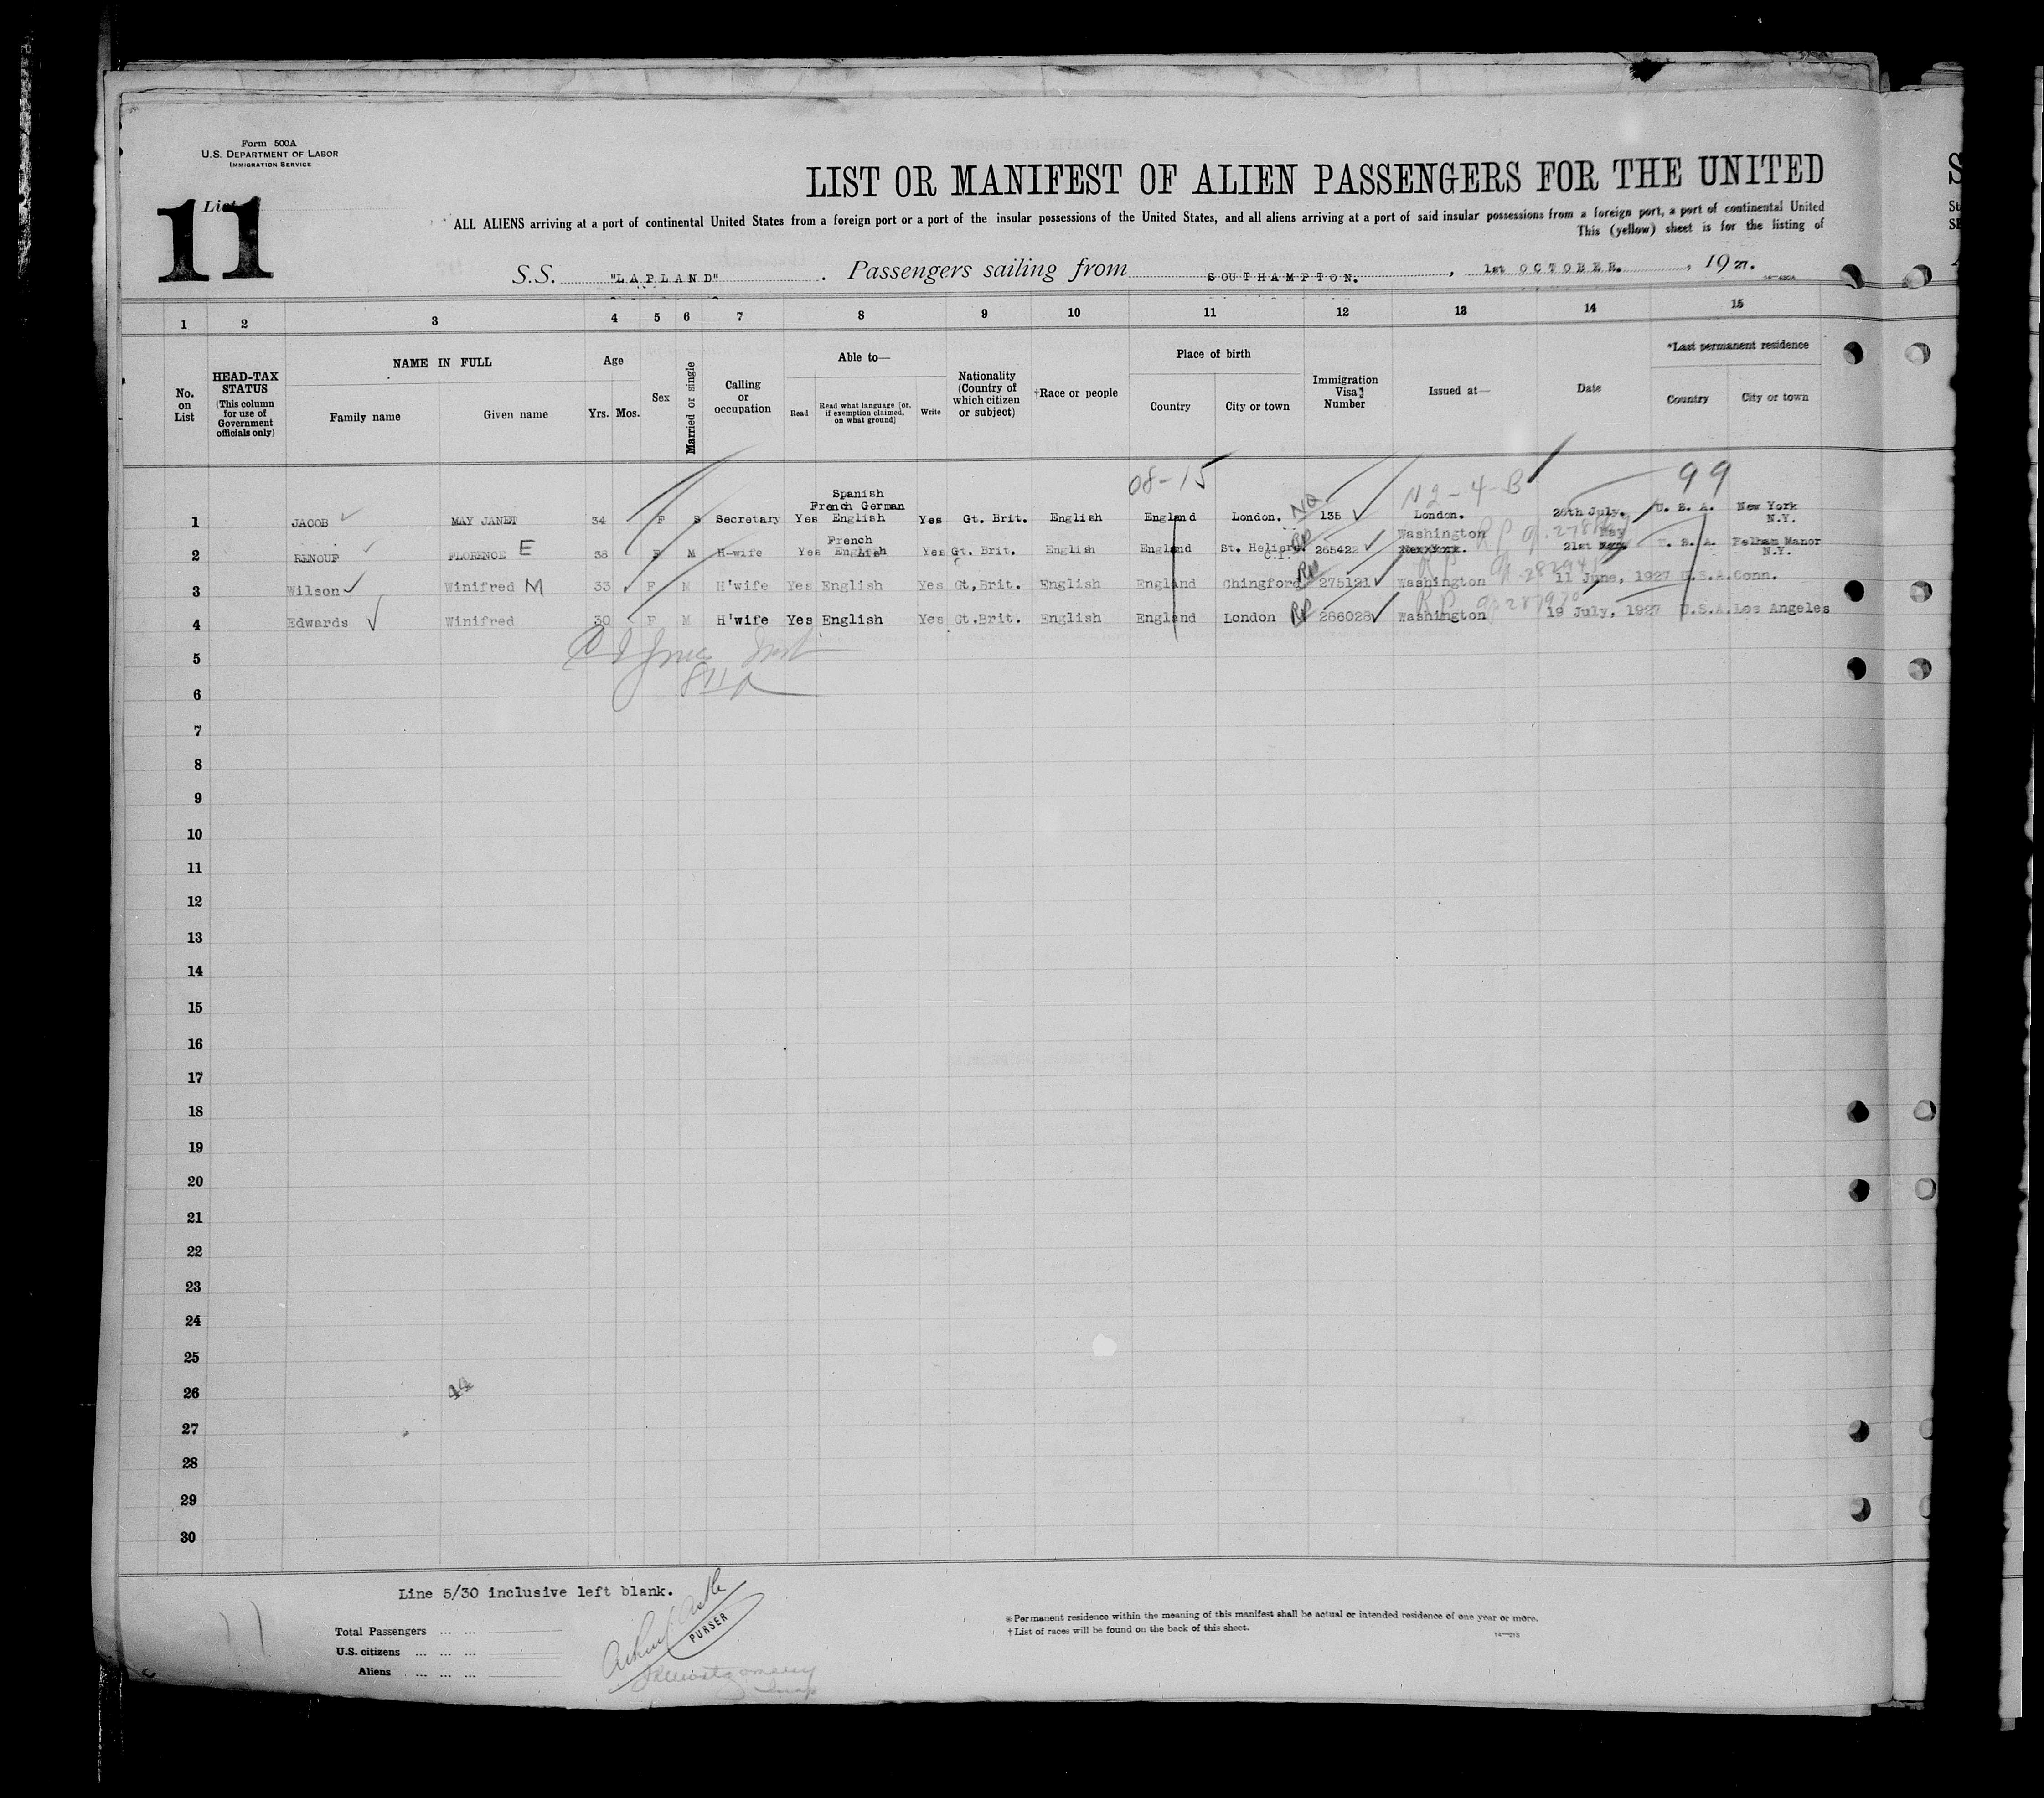 Form 500A
U.S. DEPARTMENT OF LABOR
IMMIGRATION SERVICE
List
11
LIST OR MANIFEST OF ALIEN PASSENGERS FOR THE UNITED
ALL ALIENS arriving at a port of continental United States from a foreign port or a port of the insular possessions of the United States, and all aliens arriving at a port of said insular possessions from a foreign port, a port of continental United
This (yellow) sheet is for the listing of
S.S. "LAPLAND". Passengers sailing from SOUTHAMPTON., 1st OCTOBER., 1927.
1 2 3 4 5 6 7 8 9 10 11 12 13 14 15
No. on List
HEAD-TAX STATUS (This column for use of Government officials only)
NAME IN FULL
Family name Given name
Age
Yrs. Mos.
Sex
Married or single
Calling or occupation
Able to—
Read Read what language [or, if exemption claimed, on what ground] Write
Nationality (Country of which citizen or subject)
†Race or people
Place of birth
Country City or town
Immigration Visa Number
Issued at—
Date
*Last permanent residence
Country City or town
08-15 N2-4-B 99
Spanish
French German
1 JACOB MAY JANET 34 F S Secretary Yes English Yes Gt. Brit. English England London. NQ 135 London. 26th July. U. S. A. New York N.Y.
French Washington RP May
2 RENOUF FLORENCE E 38 F M H-wife Yes English Yes Gt. Brit. English England St. Heliers. C.I. RP 265422 New York. 21st U. S. A. Pelham Manor N.Y.
3 Wilson Winifred M 33 F M H'wife Yes English Yes Gt,Brit. English England Chingford RP 275121 Washington RP 11 June, 1927 U.S.A. Conn.
4 Edwards Winifred 30 F M H'wife Yes English Yes Gt.Brit. English England London RP 286028 Washington RP 19 July, 1927 U.S.A. Los Angeles
5
6
7
8
9
10
11
12
13
14
15
16
17
18
19
20
21
22
23
24
25
26 44
27
28
29
30
Line 5/30 inclusive left blank.
Total Passengers
U.S. citizens
Aliens
PURSER
*Permanent residence within the meaning of this manifest shall be actual or intended residence of one year or more.
†List of races will be found on the back of this sheet.